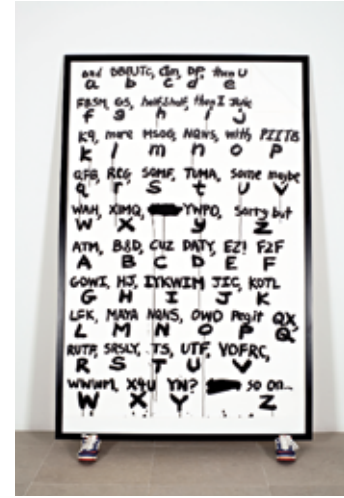 and DBEUTC, Cim, DP, then U
a b c d e
FBSM, GS, half&half, then I Jole
f g h i j
K9, more MSOG, NQNS, with PIITB
k l m n o p
QFB, RCG, SOMF, TUMA, some maybe
q r S t u v
WAH, XIMQ, YNPO, sorry but
W X y Z
ATM, B&D, CUZ DATY, EZ! F2F
A B C D E F
GOWI, HJ, IYKWIM JIC, KOTL
G H I J K
LFK, MAYA NQNS, OWO Pegit QX,
L M N O P Q
RUTF, SRSLY, TS, UTF, VOFRC,
R S T U V
WWWM, X4U YN? so on...
W X Y Z